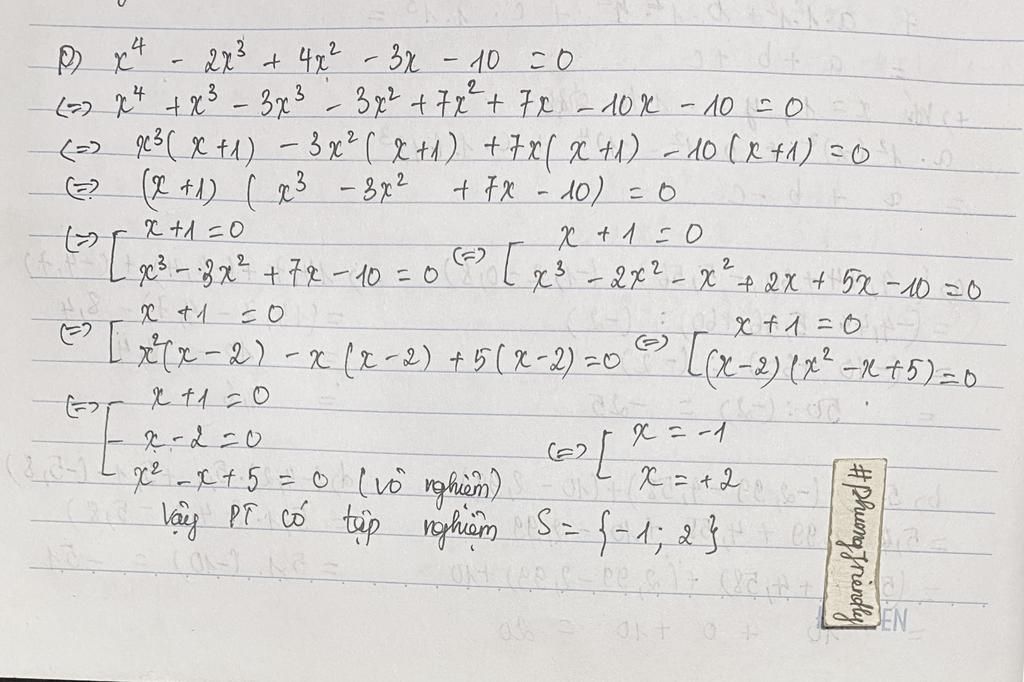 p) x⁴ - 2x³ + 4x² - 3x - 10 = 0
(=) x⁴ + x³ - 3x³ - 3x² + 7x² + 7x - 10x - 10 = 0
(=) x³(x+1) - 3x²(x+1) + 7x(x+1) - 10(x+1) = 0
(=) (x+1)(x³ - 3x² + 7x - 10) = 0
(=) [ x+1 = 0
x³ - 3x² + 7x - 10 = 0
(=) [ x + 1 = 0
x³ - 2x² - x² + 2x + 5x - 10 = 0
(=) [ x + 1 = 0
x²(x - 2) - x(x - 2) + 5(x - 2) = 0
(=) [ x + 1 = 0
(x - 2)(x² - x + 5) = 0
(=) [ x + 1 = 0
x - 2 = 0
x² - x + 5 = 0 (vô nghiệm)
(=) [ x = -1
x = +2
Vậy PT có tập nghiệm S = {-1; 2}
#Phuongfriendly
EN